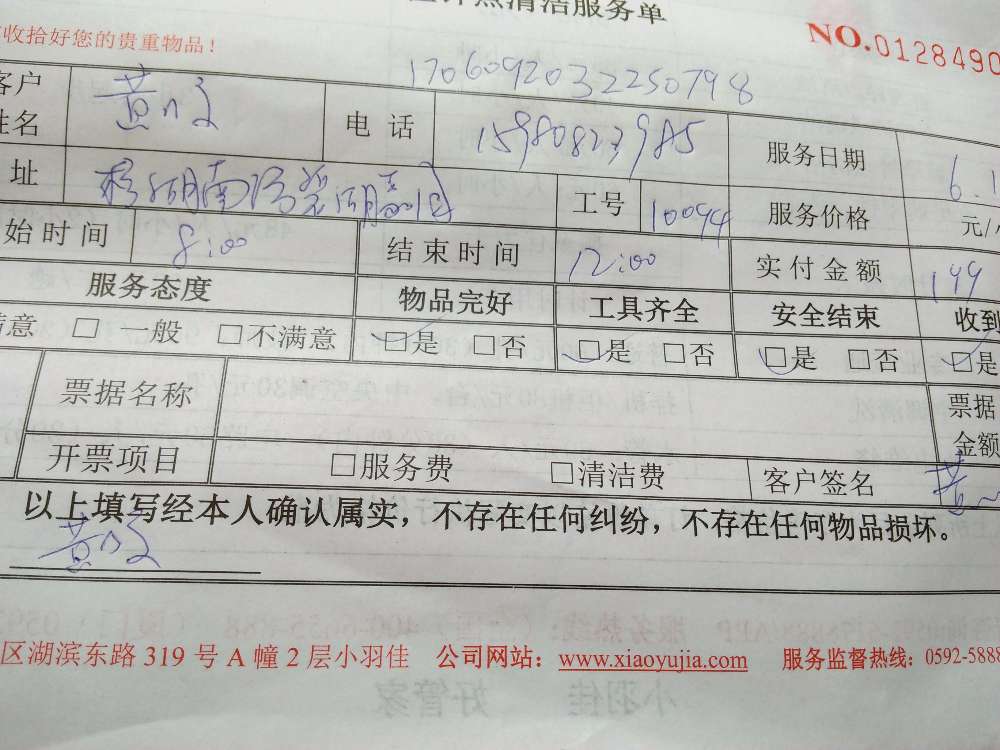 清洁服务单
收拾好您的贵重物品！
NO.0128490
17060920322250798
客户姓名 黄 电话 15980823985 服务日期 6.1
址 湖南 工号 10094 服务价格 元/
始时间 8:00 结束时间 12:00 实付金额 199
服务态度 物品完好 工具齐全 安全结束 收到
满意 □一般 □不满意 □是 □否 □是 □否 □是 □否 □是
票据名称 票据金额
开票项目 □服务费 □清洁费 客户签名 黄
以上填写经本人确认属实，不存在任何纠纷，不存在任何物品损坏。
黄
区湖滨东路 319 号 A 幢 2 层小羽佳 公司网站：www.xiaoyujia.com 服务监督热线：0592-5888